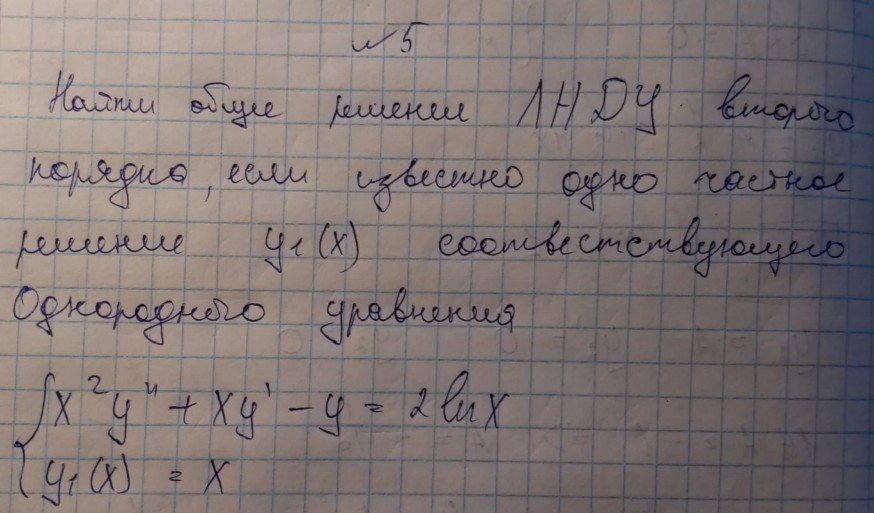 №5
Найти общее решение ЛНДУ второго
порядка, если известно одно частное
решение y₁(x) соответствующего
Однородного уравнения
{ x²y'' + xy' - y = 2 ln x
y₁(x) = x